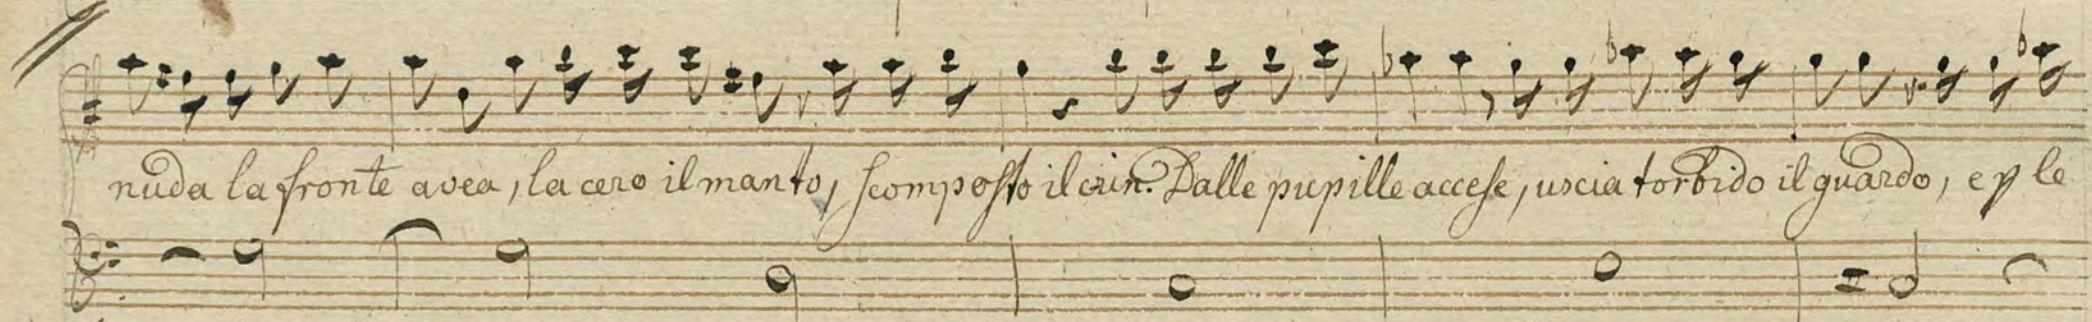 nuda la fronte avea, la cero il manto, scomposto il crin. Dalle pupille accese, uscia torbido il guardo, e p le